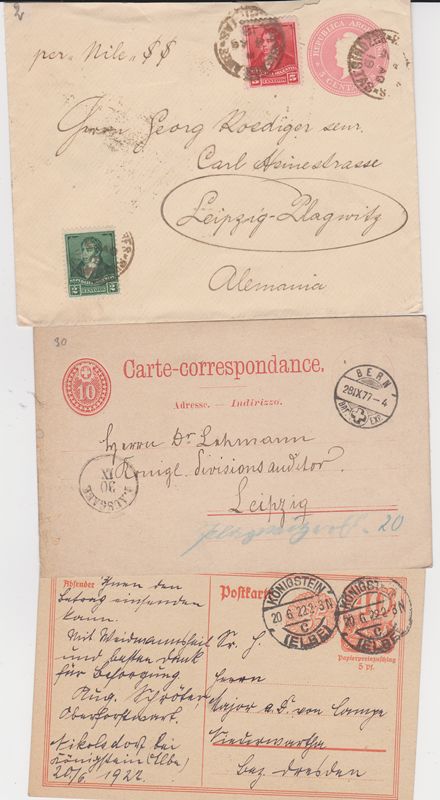 2
per "Nile" $$
REPUBLICA ARGENTINA
5 CENTAVOS
5
CENTAVOS
5
Herrn Georg Roediger senr.
Carl Heinestrasse
Leipzig-Plagwitz
Alemania
2 CENTAVOS 2
30
10
Carte-correspondance.
Adresse. — Indirizzo.
BERN
28IX77-4
BRF. EXP.
Herrn Dr Lehmann
Königl. Divisionsauditor.
Leipzig
AUSGABE
30
IX
20
Absender
Ihnen den
Betrag einsenden
kann.
Mit Weidmannsheil
und besten Dank
für Besorgung
Aug. Schröter
Oberforstwart.
Nikolsdorf bei
Königstein (Elbe)
20/6 1922.
Postkarte
KÖNIGSTEIN
20.6.22.2-3N
c
(ELBE)
KÖNIGSTEIN
20.6.22.2-3N
c
(ELBE)
Papierpreiszuschlag
5 Pf.
Sr. H.
Herrn
Major a.D. von Lampe
Niederwartha
Bez. Dresden